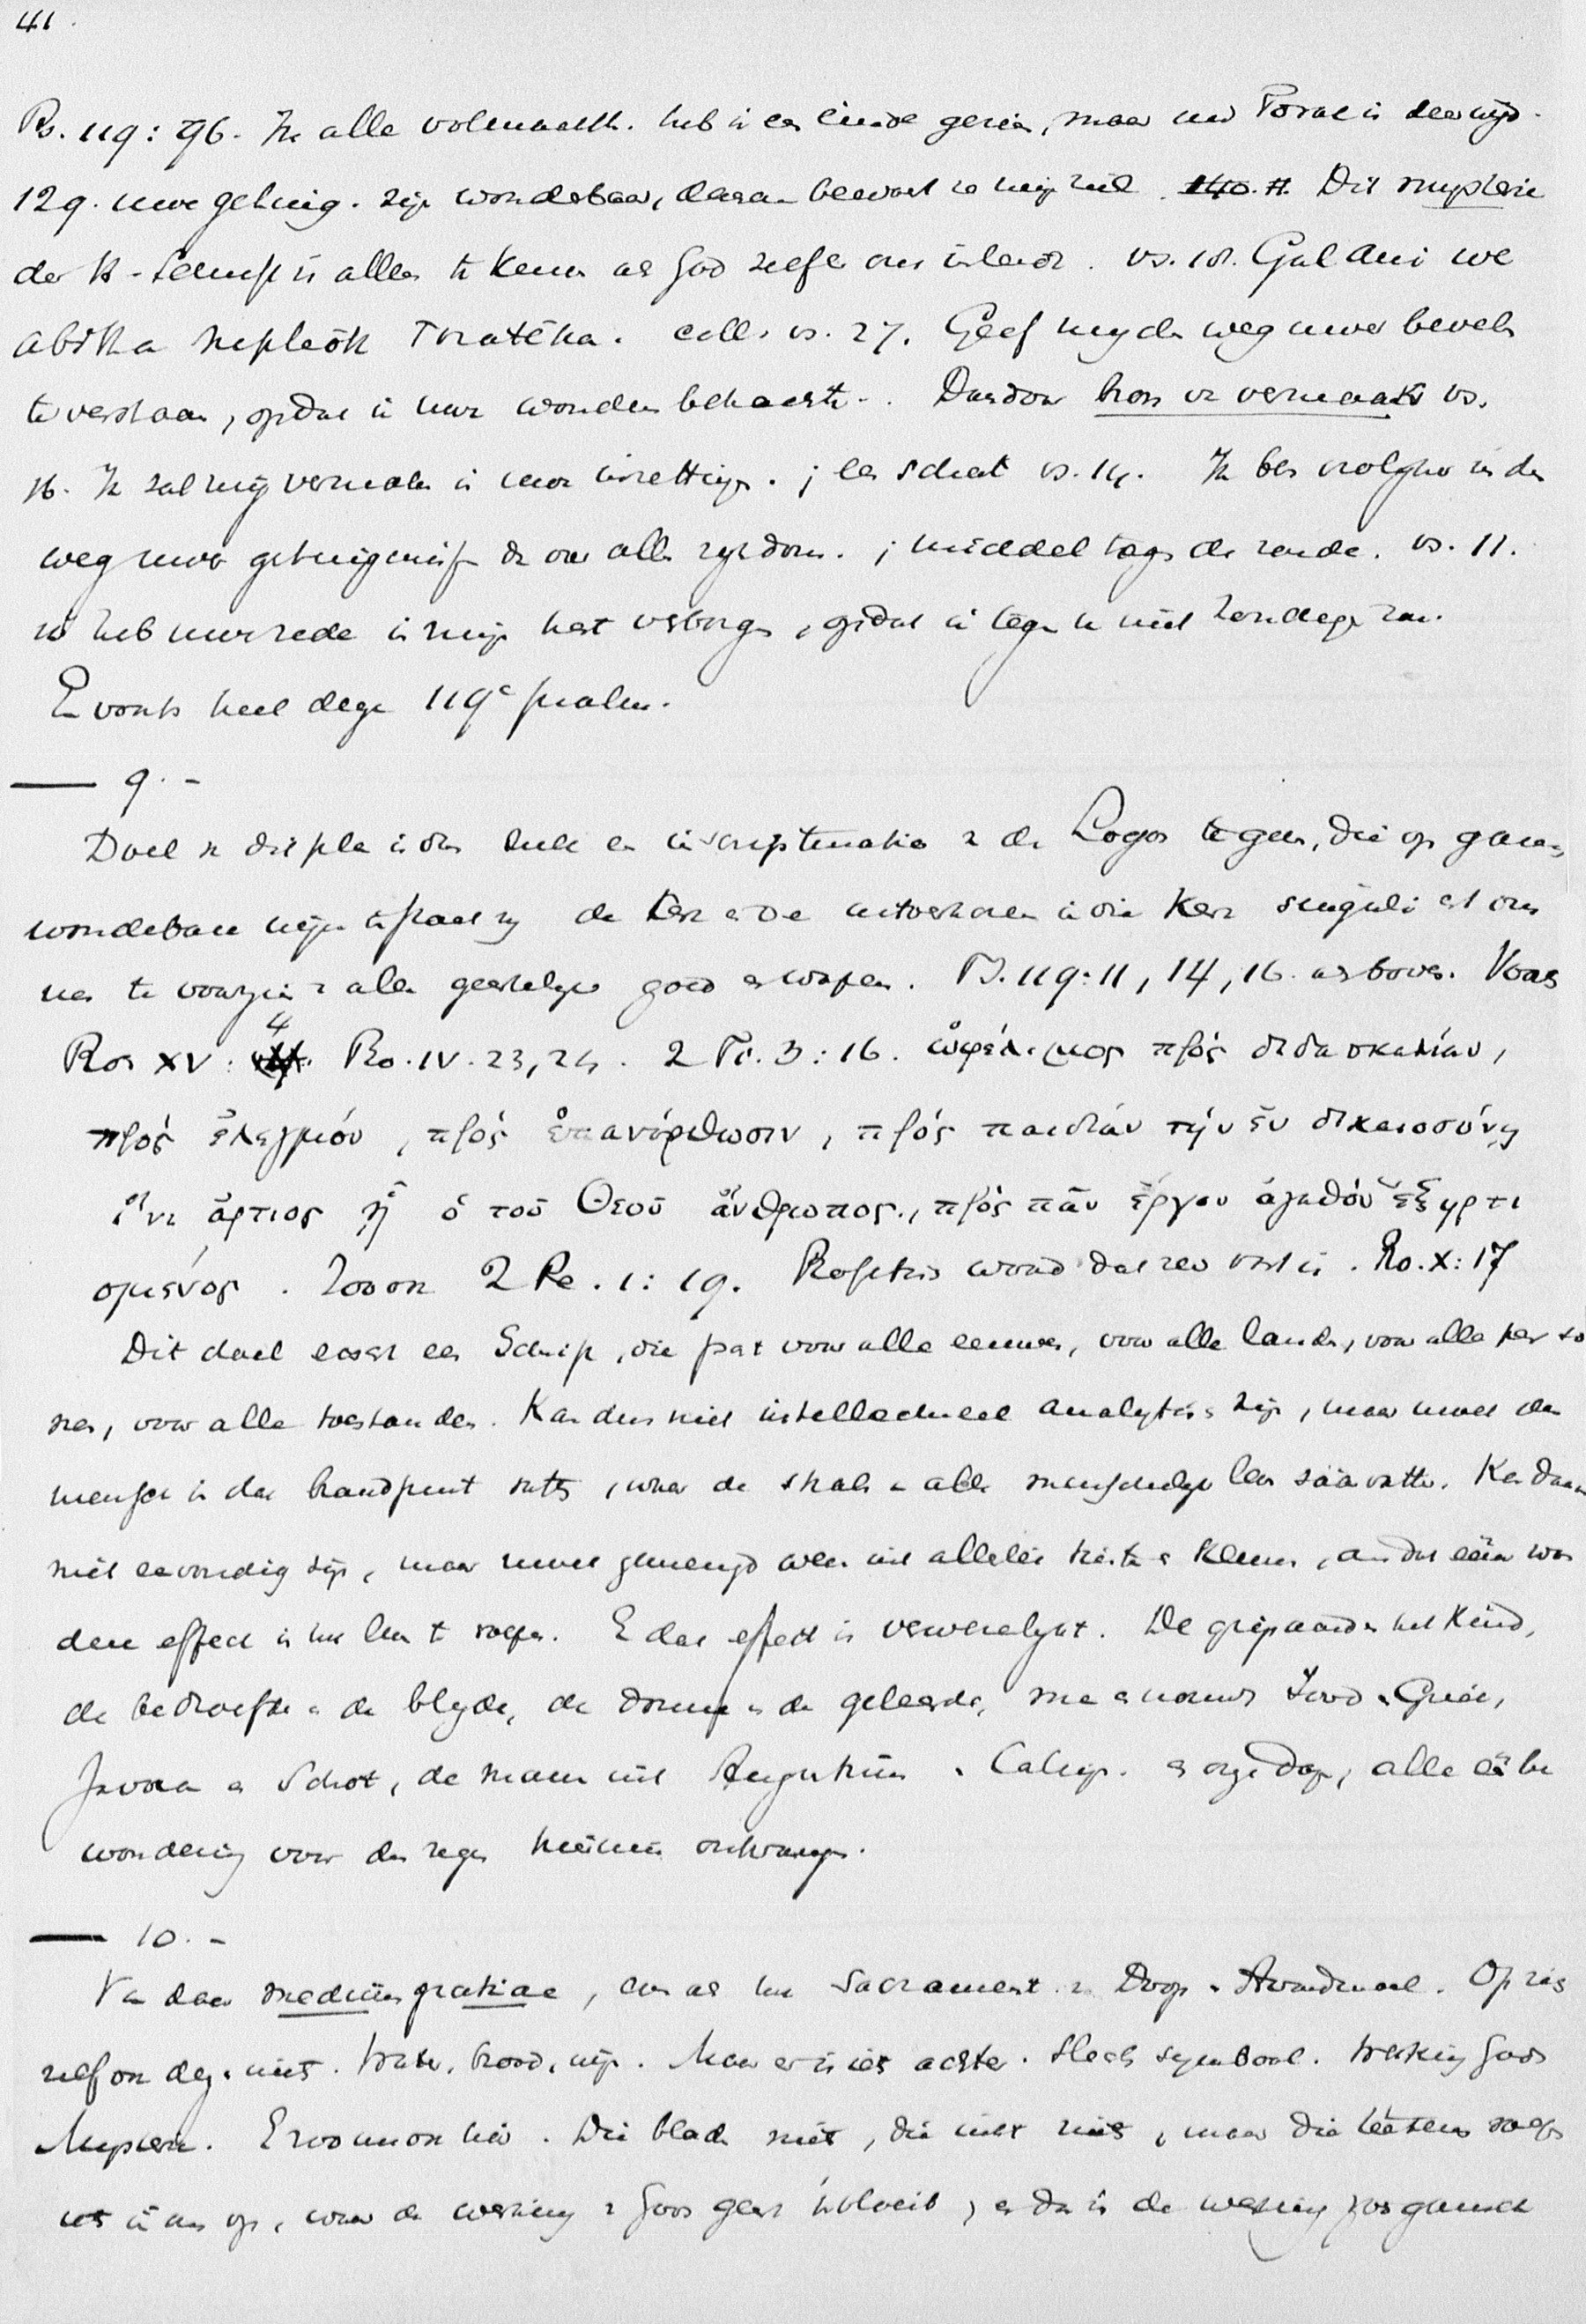 41.
Ps. 119: 96. Ik alle volmaakth. heb ik een einde gezien, maar uw Torae is zeer wijd.
129. uwe getuig. zijn wonderbaar, daarom bewaart ze mijn ziel. Dit mysterie
der H. Schrift is alleen te kennen als God zelf er ons inleidt. vs. 18. Gal äni we
abitha niphleôth Toratécha. coll. vs. 27. Geef mij den weg uwer bevelen
te verstaan, opdat ik uwe wonderen betrachte. Daardoor bron van vermaak vs.
16. Ik zal mij vermaken in uwe inzettingen. ; een schat vs. 14. Ik ben vrolijker in den
weg uwer getuigenissen dan over allen rijkdom. ; middel tegen de zonde. vs. 11.
ik heb uwe rede in mijn hart verborgen, opdat ik tegen u niet zondigen zou.
En voorts heel deze 119e psalm.
— 9. -
Doel van dit alles is den zulk een inscripturatie van den Logos te geven, die op gansch
wonderbare wijze in staat zij de Kerk en de uitverkoren in die Kerk singuli et omnes
te voorzien van allen geestelijk goed en wapen. Ps. 119: 11, 14, 16. als boven. Voorts
Rom XV: 4 Ro. IV. 23, 24. 2 Ti. 3: 16. ὠφέλιμος πρός διδασκαλίαν,
πρός ἔλεγμόν, πρός ἐπανόρθωσιν, πρός παιδίαν τήν ἐν δικαιοσύνῃ
ἵνα ἄρτιος ᾖ ὁ τοῦ Θεοῦ ἄνθρωπος, πρός πᾶν ἔργον ἀγαθόν ἐξηρτι
σμένος. Zoo ook 2 Pe. 1: 19. Profetisch woord dat zeer vast is. Ro. X: 17
Dit doel eischt een Schrift, die past voor alle eeuwen, voor alle landen, voor alle perso
nen, voor alle toestanden. Kan dus niet intellectueel analytisch zijn, maar moet den
mensch in dat brandpunt vatten, waar de stralen van alle menschelijk leven saamvatten. Kan daarom
niet eenvoudig zijn, maar moet gemengd wezen uit allerlei tinten en kleuren, om dat een won
der effect in het leven te roepen. En dat effect is verwezenlijkt. De grijsaard en het kind,
de bedroefde en de blijde, de domme en de geleerde, man en vrouw, Jood en Griek,
Javaan en Schot, de man uit Augustinus en Calvijn en onze dagen, alle één be
wondering voor den zegen hieruit ontvangen.
— 10. -
Van daar medium gratiae, even als het Sacrament van Doop en Avondmaal. Op zich
zelf ook deze niets. Water, brood, wijn. Maar er is iets achter. Slechts symbool. Werking Gods
Mysterie. En zoo nu ook hier. Die bladen niet, die inkt niet, maar die letters roepen
iets in ons op, waar de werking van Gods geest invloeit, en dan is de werking zoo gansch